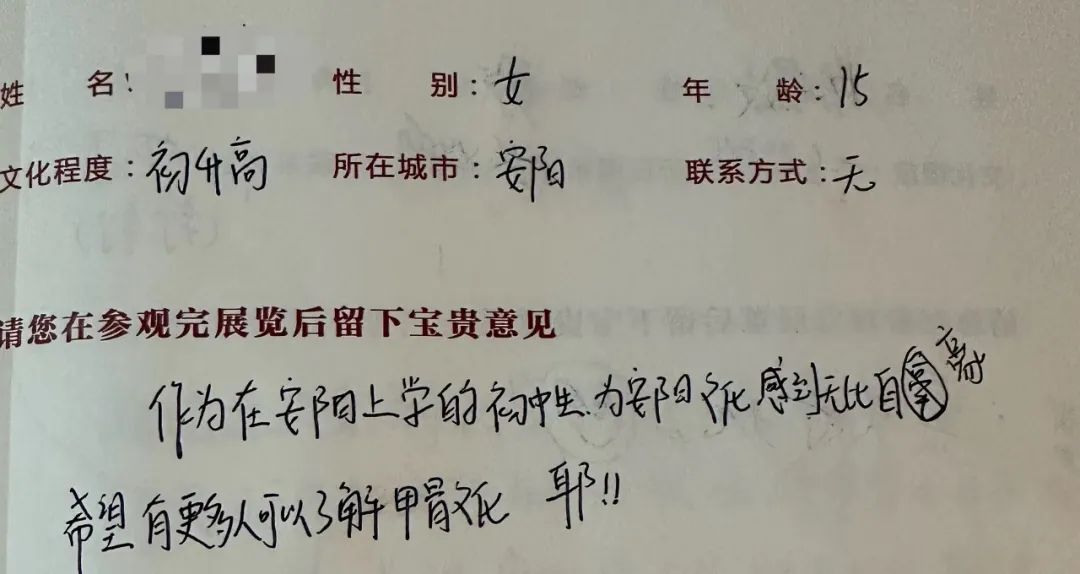 姓 名： 性 别：女 年 龄：15
文化程度：初升高 所在城市：安阳 联系方式：无
请您在参观完展览后留下宝贵意见
作为在安阳上学的初中生,为安阳文化感到无比自豪
希望有更多人可以了解甲骨文化 耶!!